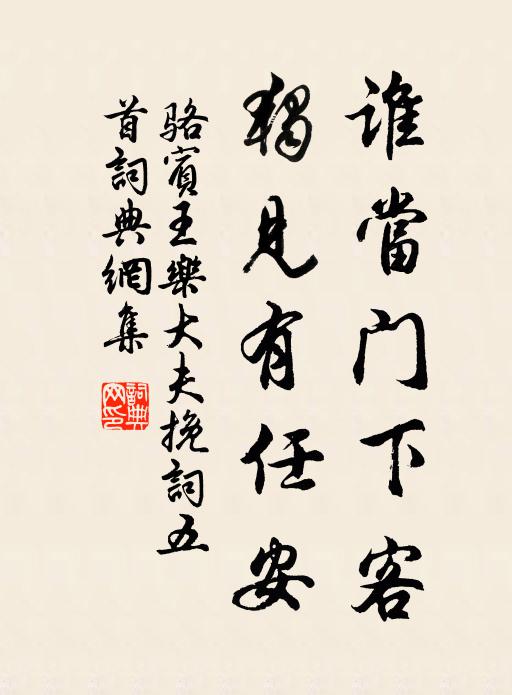 誰當門下客
獨見有任安
駱賓王樂大夫挽詞五
首詞典網集
詞典
网印